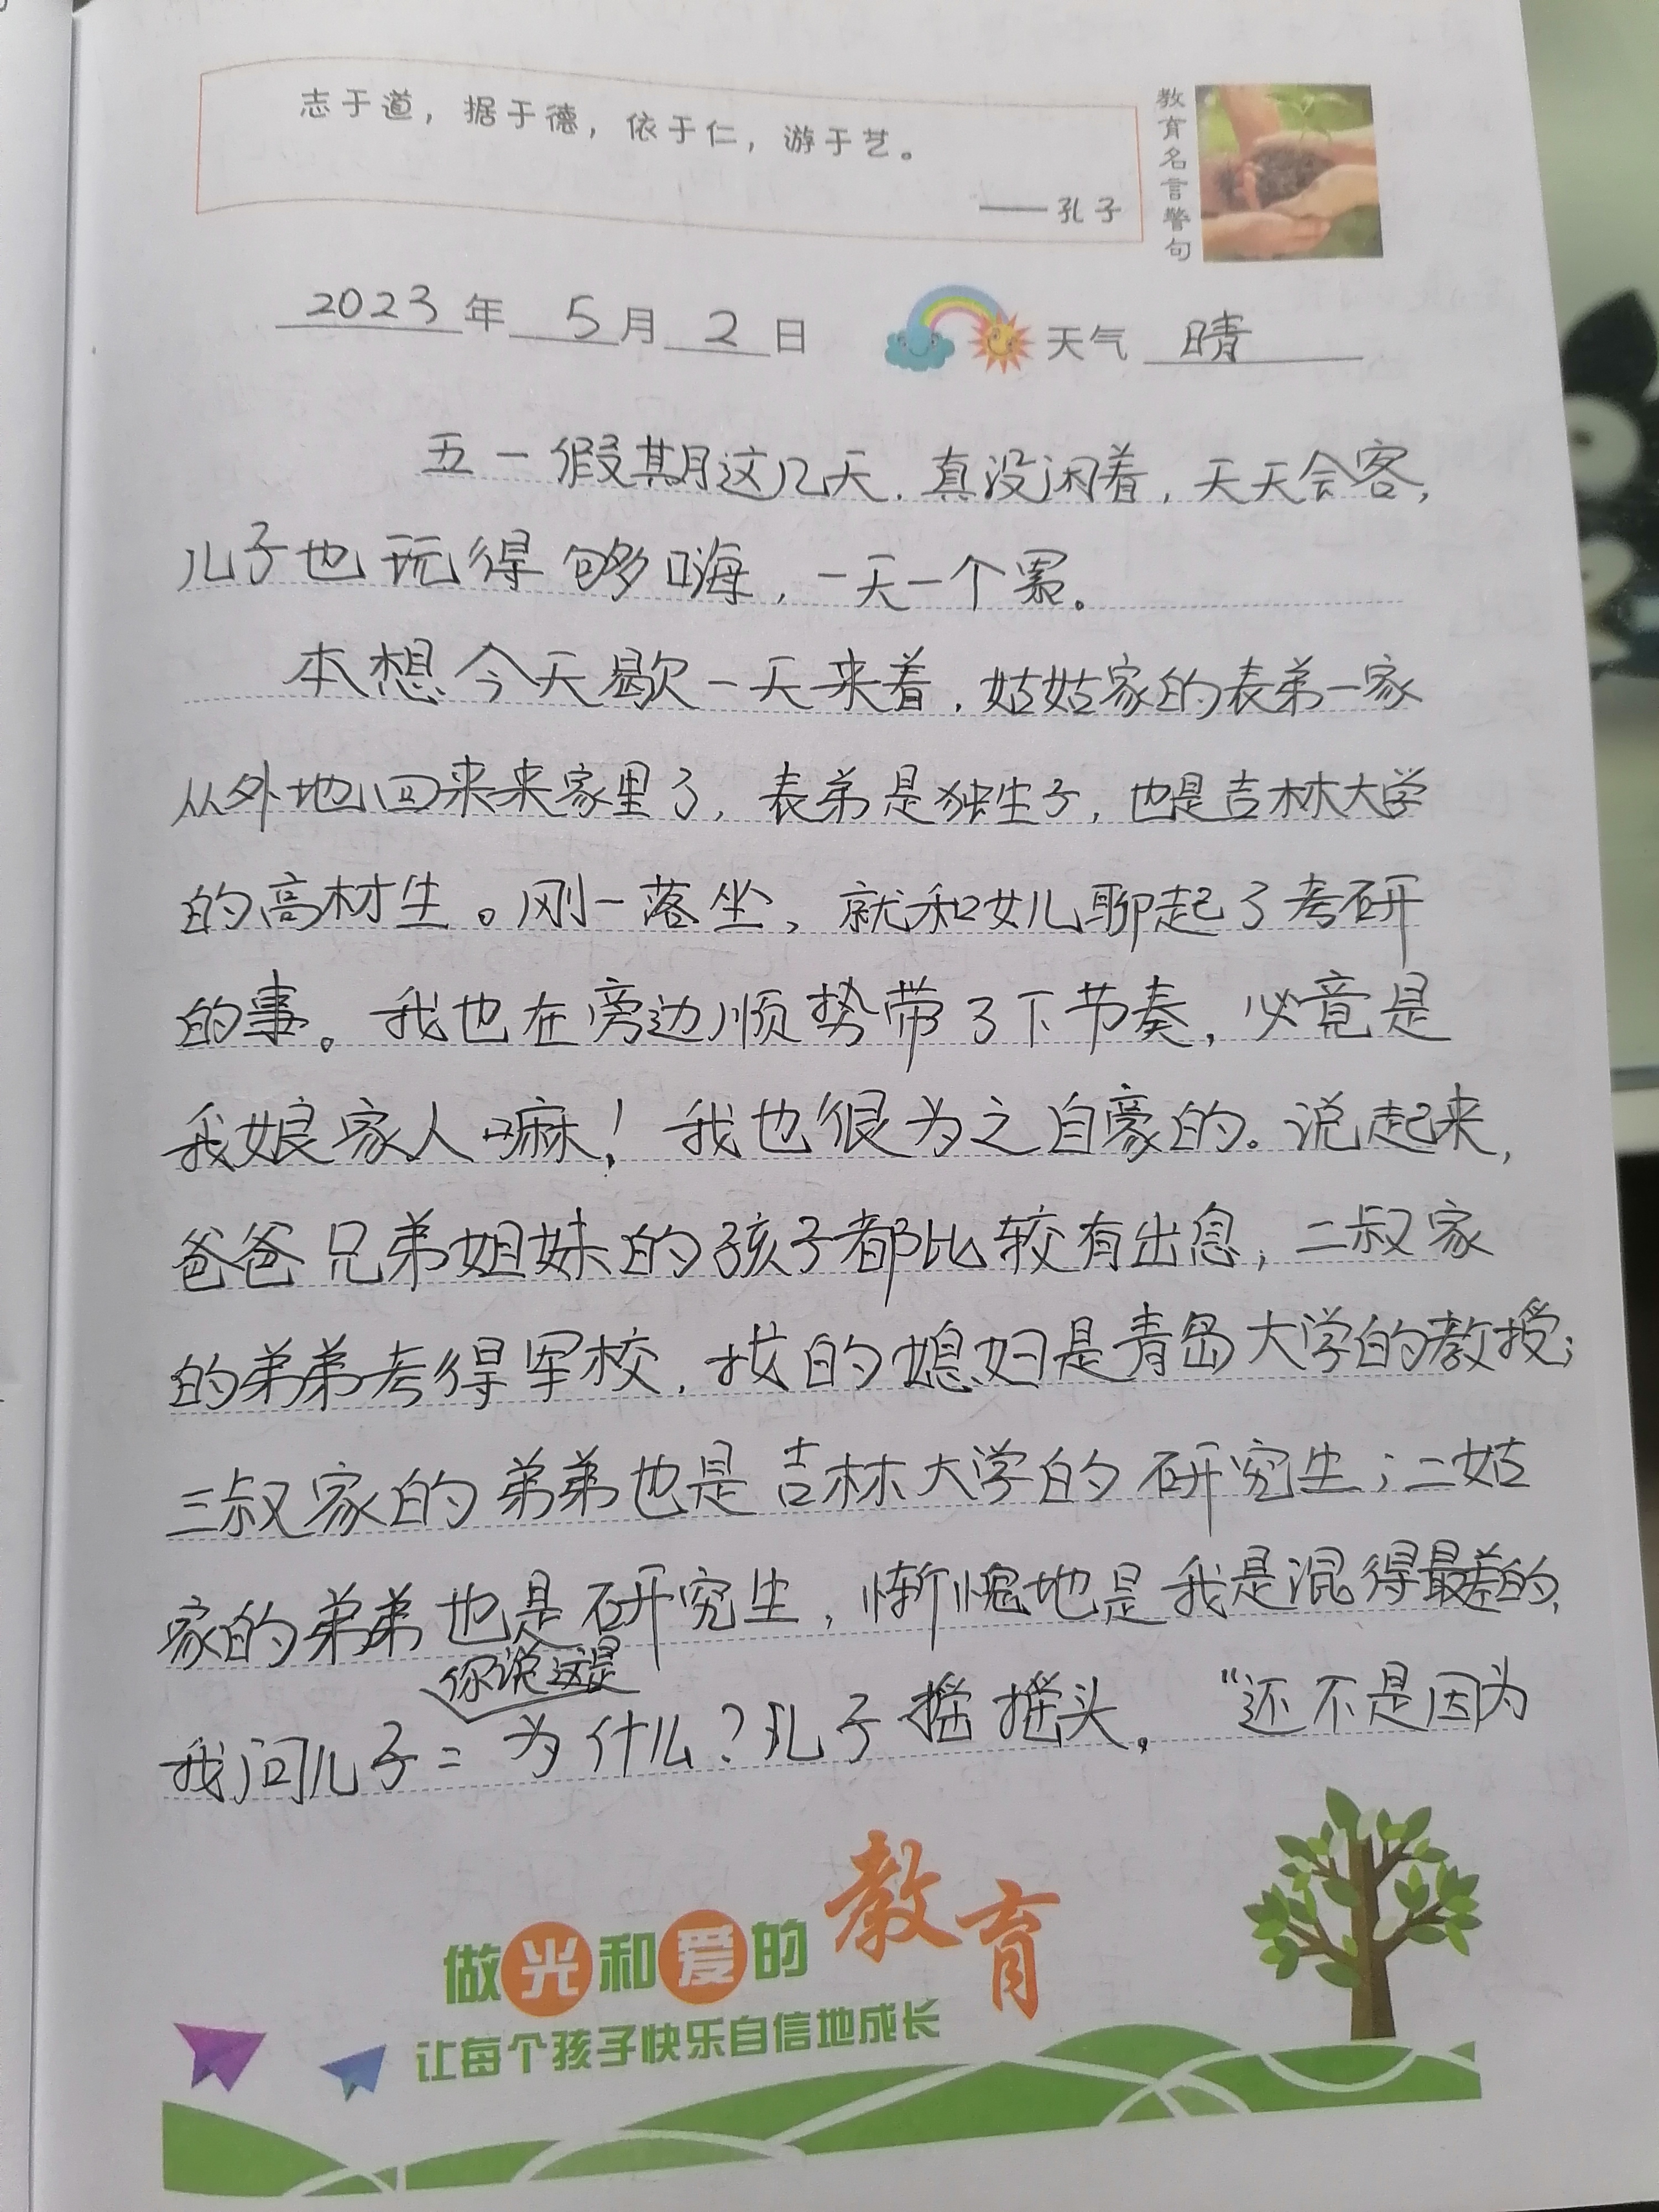 志于道，据于德，依于仁，游于艺。
——孔子
教育名言警句
2023年 5月 2日 天气 晴
五一假期这几天，真没闲着，天天会客，
儿子也玩得够嗨，一天一个累。
本想今天歇一天来着，姑姑家的表弟一家
从外地回来来家里了，表弟是独生子，也是吉林大学
的高材生。刚一落坐，就和女儿聊起了考研
的事。我也在旁边顺势带了下节奏，必竟是
我娘家人嘛！我也很为之自豪的。说起来，
爸爸兄弟姐妹的孩子都比较有出息，二叔家
的弟弟考得军校，找的媳妇是青岛大学的教授；
三叔家的弟弟也是吉林大学的研究生；二姑
家的弟弟也是研究生，惭愧地是我是混得最差的，
你说这是
我问儿子：为什么？儿子摇摇头。“还不是因为
做光和爱的教育
让每个孩子快乐自信地成长